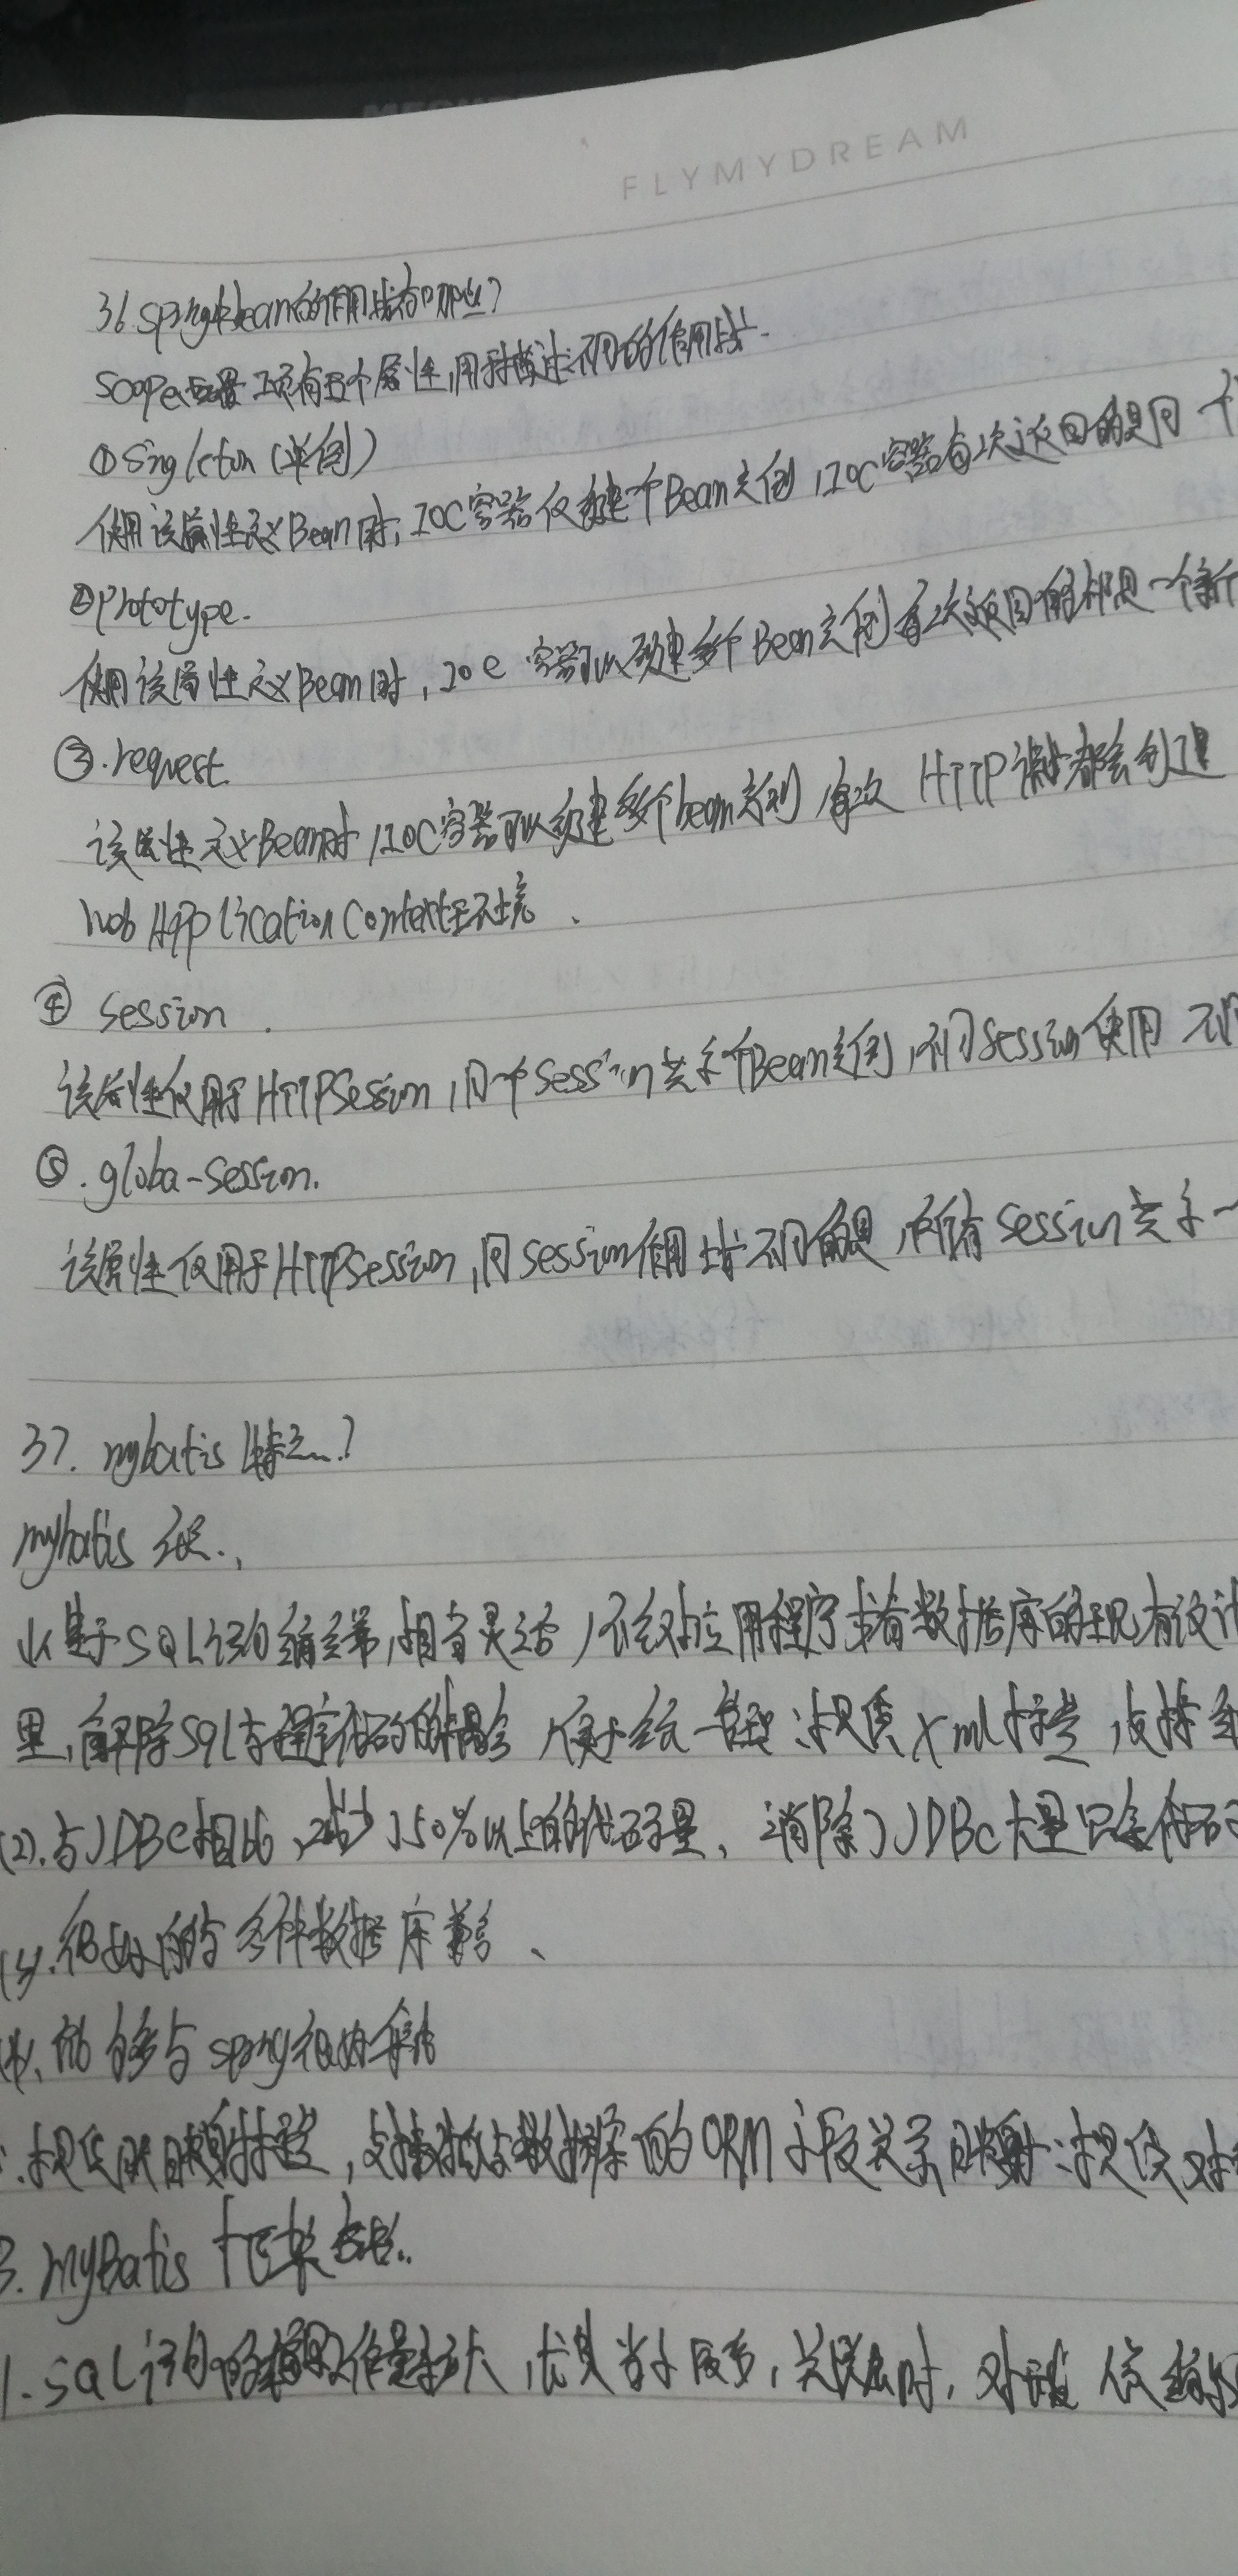 FLYMYDREAM
36 spring中bean的作用域有哪些?
scope配置项有五个属性,用于描述不同的作用域.
①singleton(单例)
使用该属性定义Bean时,IOC容器仅创建一个Bean实例,IOC容器每次返回的是同一个
②prototype.
使用该属性定义Bean时,IOC容器可以创建多个Bean实例每次返回的都是一个新
③.request
该属性定义Bean时,IOC容器可以创建多个bean实例,每次HTTP请求都会创建
WebApplicationContext环境、
④ session.
该属性仅用于HTTPSession,同一个Session共享一个Bean实例,不同Session使用不同
⑤.globa-session.
该属性仅用于HTTPSession,同session作用域不同的是,所有session共享一
37. mybatis 缺点?
mybatis 优点.,
(1)基于SQL语句编程,相当灵活,不会对应用程序或者数据库的现有设计
里,解除sql与程序代码的耦合,便于统一管理:提供xml标签,支持
(2).与JDBC相比,减少了50%以上的代码量,消除了JDBC大量冗余代码
(3).很好的与各种数据库兼容、
(4).能够与spring很好集成
:提供映射标签,支持对象与数据库的ORM字段关系映射:提供对
3. MyBatis 框架缺点.
1.SQL语句的编写工作量较大,尤其当字段多,关联表时,对 编写